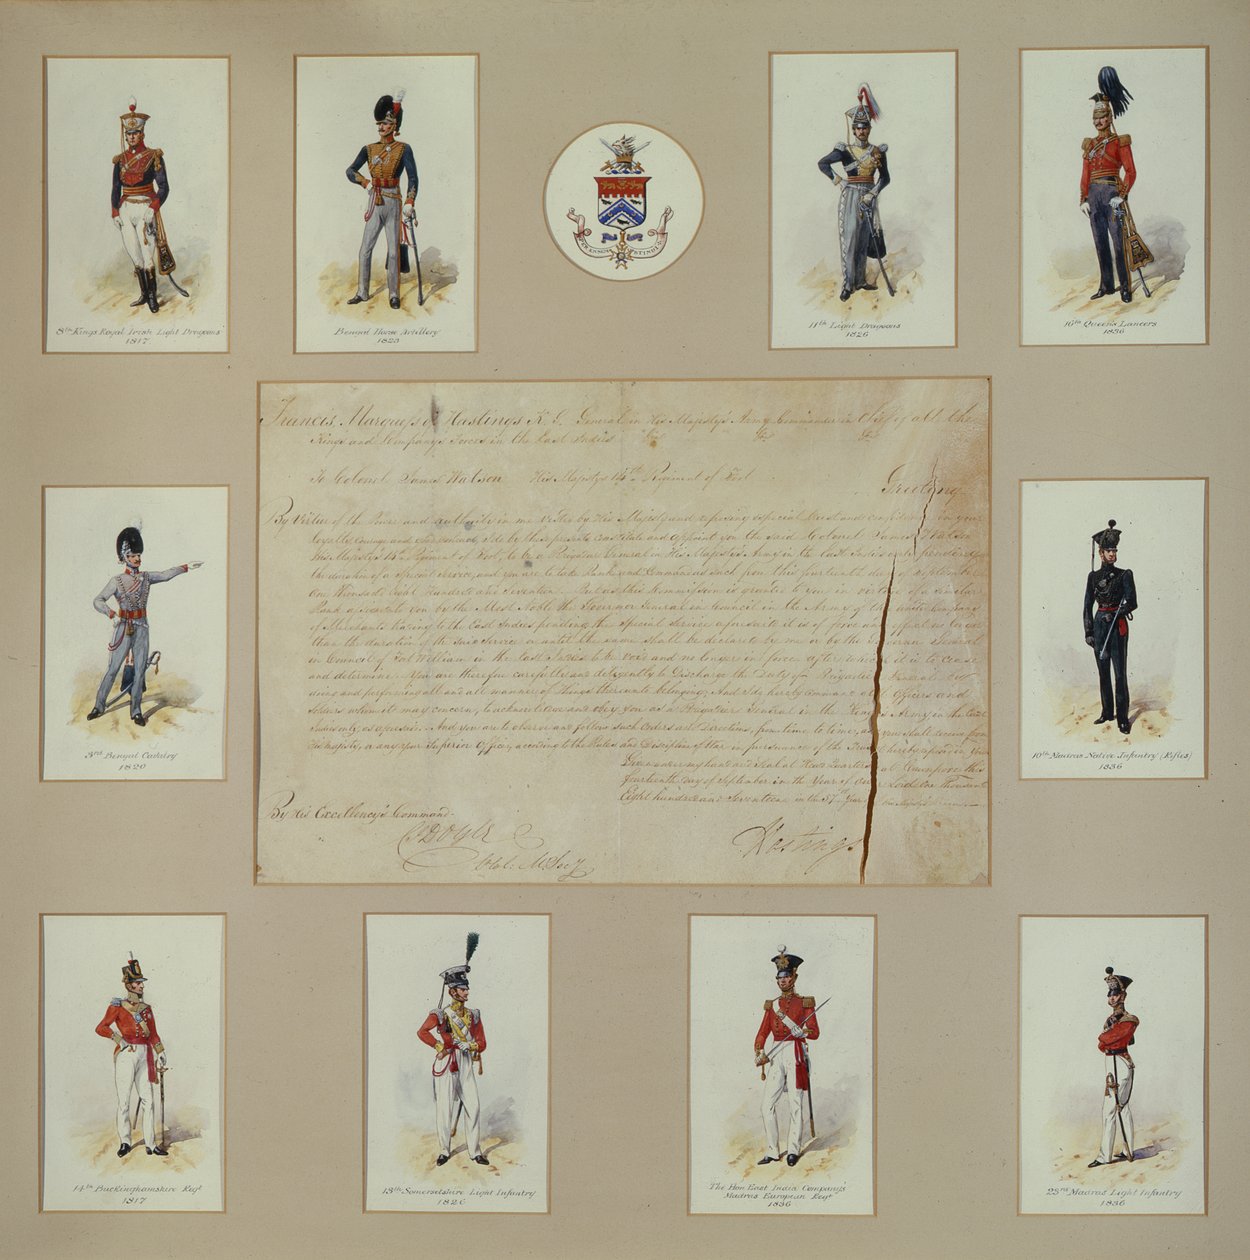 8th Kings Royal Irish Light Dragoons
1817
Bengal Horse Artillery
1823
11th Light Dragoons
1826
16th Queens Lancers
1836
Francis, Marquess of Hastings K. G. General in His Majesty's Army Commander in Chief of all the
Kings and Company's Forces in the East Indies &c &c &c
To Colonel James Watson His Majestys 14th Regiment of Foot Greeting
By Virtue of the Power and authority in me vested by His Majesty and reposing especial trust and confidence in your
loyalty, courage and I do by these presents constitute and appoint you the said Colonel James Watson
His Majesty's 14th Regiment of Foot, to be a Brigadier General in His Majesty's Army in the East Indies pending
the duration of a special service, and you are to take Rank and Command as such from this fourteenth day of September
One thousand Eight Hundred and Seventeen. But as this Commission is granted to you in virtue of a similar
Rank by the Most Noble the Governor General in Council in the Army of the United Company
of Merchants trading to the East Indies pending the special service aforesaid it is of force
than the duration of the said Service or until the same shall be declared by me or by the Governor General
in Council of Fort William in the East Indies to be void and no longer in force after which it is to cease
and determine. You are therefore carefully and diligently to Discharge the Duty of Brigadier General by
doing and performing all and all manner of things thereunto belonging; And I do hereby command all Officers and
Soldiers whom it may concern, to acknowledge and obey you as a Brigadier General in the Kings Army in the East
Indies only as aforesaid. And you are to observe and follow such Orders and Directions, from time to time, as you shall receive from
His Majesty, or any your Superior Officer, according to the Rules and Discipline of War in pursuance of the trust hereby reposed in you.
Given under my hand and Seal at Head Quarters at Cawnpore this
fourteenth day of September in the Year of our Lord One thousand
Eight hundred and Seventeen in the 57th Year of His Majesty's Reign
By His Excellency's Command
C J Doyle
Hastings
Mil. Secy
3rd Bengal Cavalry
1820
10th Madras Native Infantry (Rifles)
1836
14th Buckinghamshire Regt
1817
13th Somersetshire Light Infantry
1826
The Hon East India Company's
Madras European Regt
1836
23rd Madras Light Infantry
1836